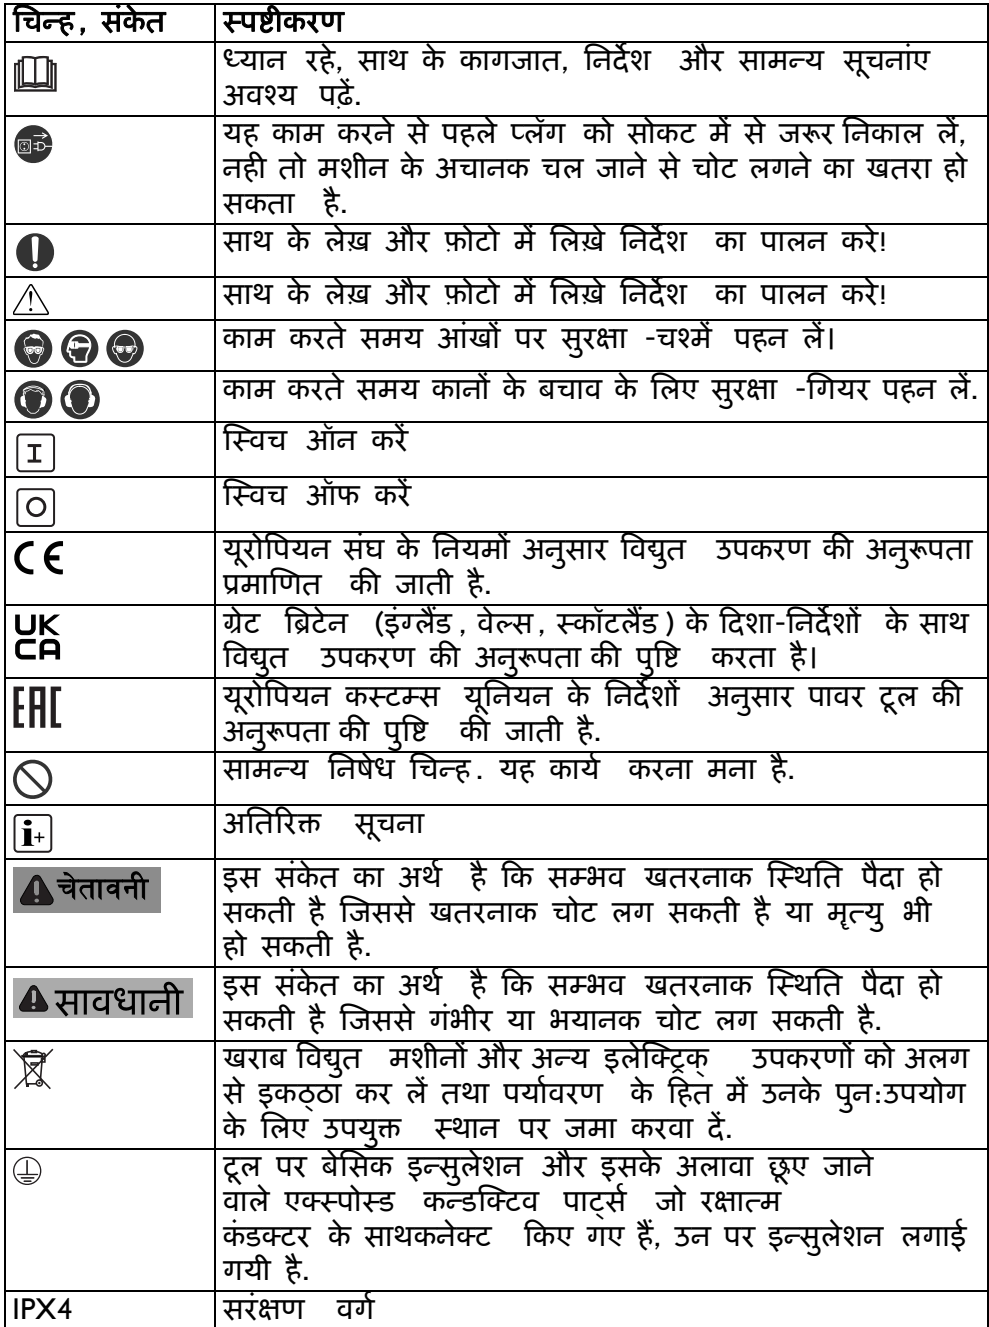 चिन्ह, संकेत स्पष्टीकरण
ध्यान रहे, साथ के कागजात, निर्देश और सामन्य सूचनांए
अवश्य पढ़ें.
यह काम करने से पहले प्लॅग को सोकट में से जरूर निकाल लें,
नही तो मशीन के अचानक चल जाने से चोट लगने का खतरा हो
सकता है.
साथ के लेख़ और फ़ोटो में लिख़े निर्देश का पालन करे!
साथ के लेख़ और फ़ोटो में लिख़े निर्देश का पालन करे!
काम करते समय आंखों पर सुरक्षा -चश्में पहन लें।
काम करते समय कानों के बचाव के लिए सुरक्षा -गियर पहन लें.
I स्विच ऑन करें
O स्विच ऑफ करें
CE यूरोपियन संघ के नियमों अनुसार विद्युत उपकरण की अनुरूपता
प्रमाणित की जाती है.
UK
CA
ग्रेट ब्रिटेन (इंग्लैंड, वेल्स, स्कॉटलैंड) के दिशा-निर्देशों के साथ
विद्युत उपकरण की अनुरूपता की पुष्टि करता है।
EAC यूरोपियन कस्टम्स यूनियन के निर्देशों अनुसार पावर टूल की
अनुरूपता की पुष्टि की जाती है.
सामन्य निषेध चिन्ह. यह कार्य करना मना है.
i+ अतिरिक्त सूचना
चेतावनी इस संकेत का अर्थ है कि सम्भव खतरनाक स्थिति पैदा हो
सकती है जिससे खतरनाक चोट लग सकती है या मृत्यु भी
हो सकती है.
सावधानी इस संकेत का अर्थ है कि सम्भव खतरनाक स्थिति पैदा हो
सकती है जिससे गंभीर या भयानक चोट लग सकती है.
खराब विद्युत मशीनों और अन्य इलेक्ट्रिक् उपकरणों को अलग
से इकठ्ठा कर लें तथा पर्यावरण के हित में उनके पुन:उपयोग
के लिए उपयुक्त स्थान पर जमा करवा दें.
टूल पर बेसिक इन्सुलेशन और इसके अलावा छूए जाने
वाले एक्स्पोस्ड कन्डक्टिव पार्ट्स जो रक्षात्म
कंडक्टर के साथकनेक्ट किए गए हैं, उन पर इन्सुलेशन लगाई
गयी है.
IPX4 सरंक्षण वर्ग